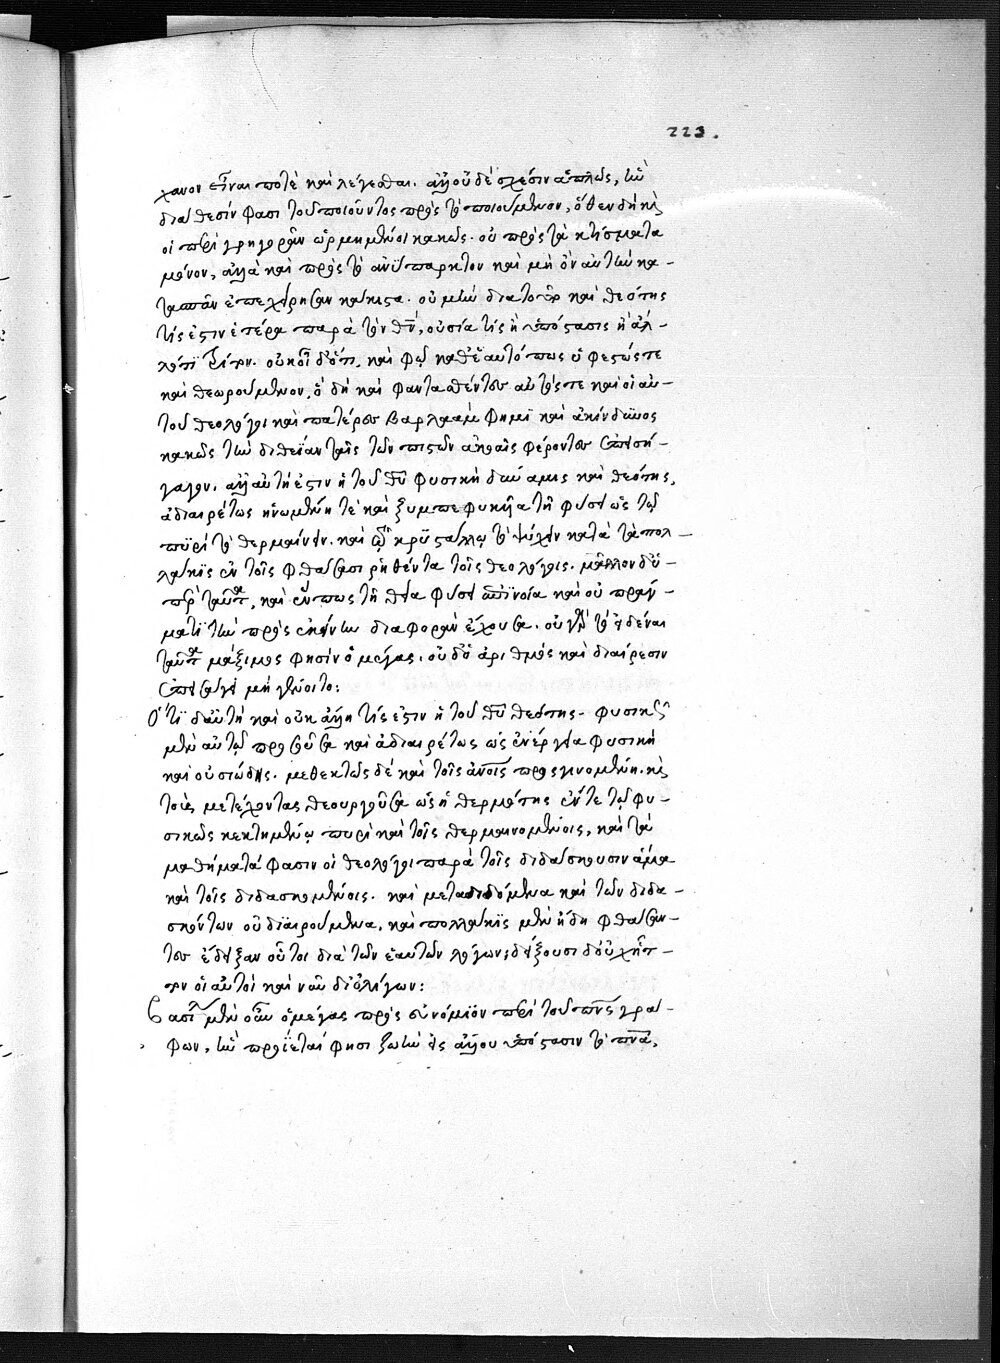 223.
χανον εἶναι ποτὲ καὶ λέγεσθαι. ἀλλ' οὐδὲ σχέσιν ἁπλῶς, ἣν
διάθεσίν φασι τοῦ ποιοῦντος πρὸς τὸ ποιούμενον, ὅθεν δὴ καὶ
οἱ περὶ γρηγορᾶν ὡρμημένοι κακῶς. οὐ πρὸς τὰ κτίσματα
μόνον, ἀλλὰ καὶ πρὸς τὸ ἀνύπαρκτον καὶ μὴ ὂν αὐτὴν κα-
τασπᾶν ἐπεχείρησαν κάκιστα. οὐ μὴν διατοῦτο καὶ θεότης
τίς ἐστιν ἑτέρα παρὰ τὸν θν, οὐσία τίς ἢ ὑπόστασις ἢ ἀλ-
λότριον. οὐκοῦν οὐδέ τι, καὶ φῶς καθ' ἑαυτό πως ὑφεστώς τε
καὶ θεωρούμενον, ὃ δὴ καὶ φαντασθέντες αὐτός τε καὶ οἱ αὐ-
τοῦ θεολόγοι καὶ πατέρες βαρλαὰμ φημὶ καὶ ἀκίνδυνος
κακῶς τὴν διθεΐαν ταῖς τῶν πιστῶν ἀκοαῖς φέροντες ἐπεισή-
γαγον. ἀλλ' αὐτή ἐστιν ἡ τοῦ θυ φυσικὴ δύναμις καὶ θεότης,
ἀδιαιρέτως ἡνωμένη τὲ καὶ ξυμπεφυκυῖα τῇ φύσει ὡς τῷ
πυρὶ τὸ θερμαίνειν. καὶ τῷ κρυστάλλῳ τὸ ψύχειν κατὰ τὰ πολ-
λάκις ἐν τοῖς φθάσασι ῥηθέντα τοῖς θεολόγοις. μᾶλλον δὲ
ὑπὲρ ταῦτα, καὶ εἴπως τῇ θεία φύσει ἐπινοία καὶ οὐ πράγ-
ματι τὴν πρὸς ἐκείνην διαφορὰν ἔχουσα. οὐ γὰρ τὸ εἰδέναι
ταῦτα μάξιμος φησὶν ὁ μέγας. οὐδὲ ἀριθμὸς καὶ διαίρεσιν
ἐπεισάγει μὴ γένοιτο:
Ὅτι δ' αὐτὴ καὶ οὐκ ἄλλη τίς ἐστιν ἡ τοῦ θυ θεότης. φυσικῶς
μὲν αὐτῷ προσοῦσα καὶ ἀδιαιρέτως ὡς ἐνέργεια φυσικὴ
καὶ οὐσιώδης. μεθεκτῶς δὲ καὶ τοῖς ἀνοις προσγινομένη. καὶ
τοὺς μετέχοντας θεουργοῦσα ὡς ἡ θερμότης ἔν τε τῷ φυ-
σικῶς κεκτημένῳ πυρὶ καὶ τοῖς θερμαινομένοις, καὶ τὰ
μαθήματά φασιν οἱ θεολόγοι παρὰ τοῖς διδάσκουσιν ἅμα
καὶ τοῖς διδασκομένοις. καὶ μεταδιδόμενα καὶ τῶν διδα-
σκόντων οὐ διαιρούμενα, καὶ πολλάκις μὲν ἤδη φθάσαν-
τες ἔδειξαν οὗτοι διὰ τῶν ἑαυτῶν λόγων; δείξουσι δ' οὐχ ἧττ-
ον οἱ αὐτοὶ καὶ νῦν δι' ὀλίγων:
Βασίλειος μὲν οὖν ὁ μέγας πρὸς εὐνόμιον περὶ τοῦ πνς γρά-
φων, ἣν προΐεταί φησι ζωὴν εἰς ἄλλου ὑπόστασιν τὸ πνα,